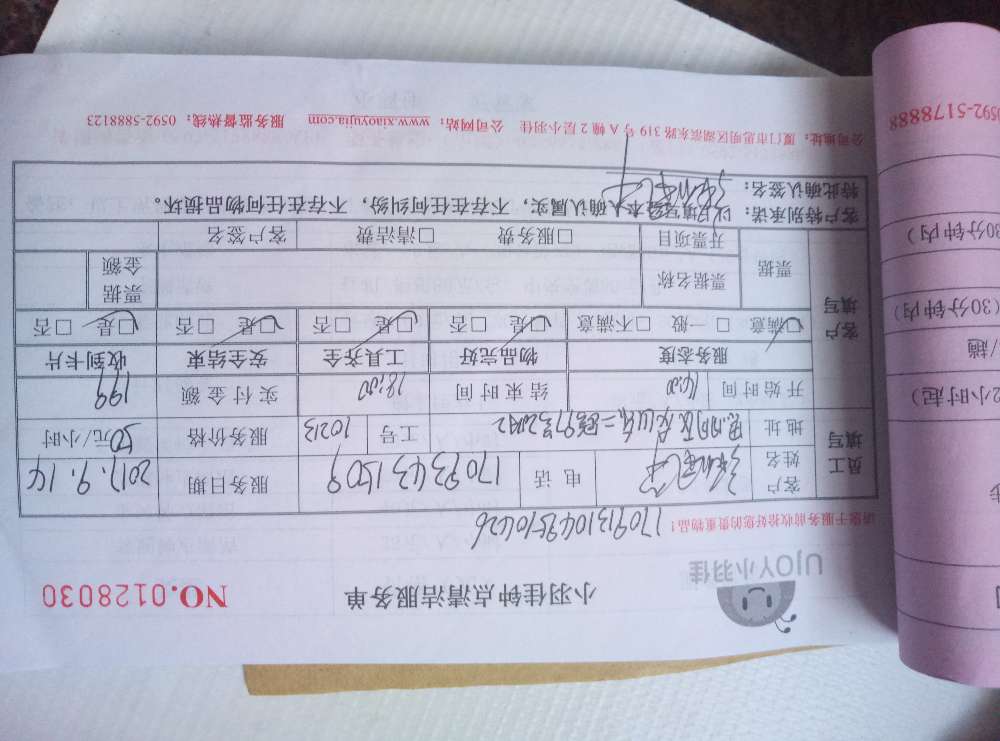 UJOY小羽佳
小羽佳钟点清洁服务单
NO.0128030
请您于服务前收拾好您的贵重物品！
客户姓名 电话 17093431509 服务日期 2017.9.14
员工填写
地址 工号 10213 服务价格 50元/小时
开始时间 16:00 结束时间 18:00 实付金额 199
服务态度 物品完好 工具齐全 安全结束 收到卡片
客户填写
□满意 □一般 □不满意 □是 □否 □是 □否 □是 □否 □是 □否
票据 票据名称 票据金额
开票项目 □服务费 □清洁费 客户签名
客户特别承诺：以上填写经本人确认属实，不存在任何纠纷，不存在任何物品损坏。
特此确认签名：
公司地址：厦门市思明区湖滨东路 319 号 A 幢 2 层小羽佳 公司网站：www.xiaoyujia.com 服务监督热线：0592-5888123
2小时起）
/趟
（30分钟内）
30分钟内）
0592-5178888